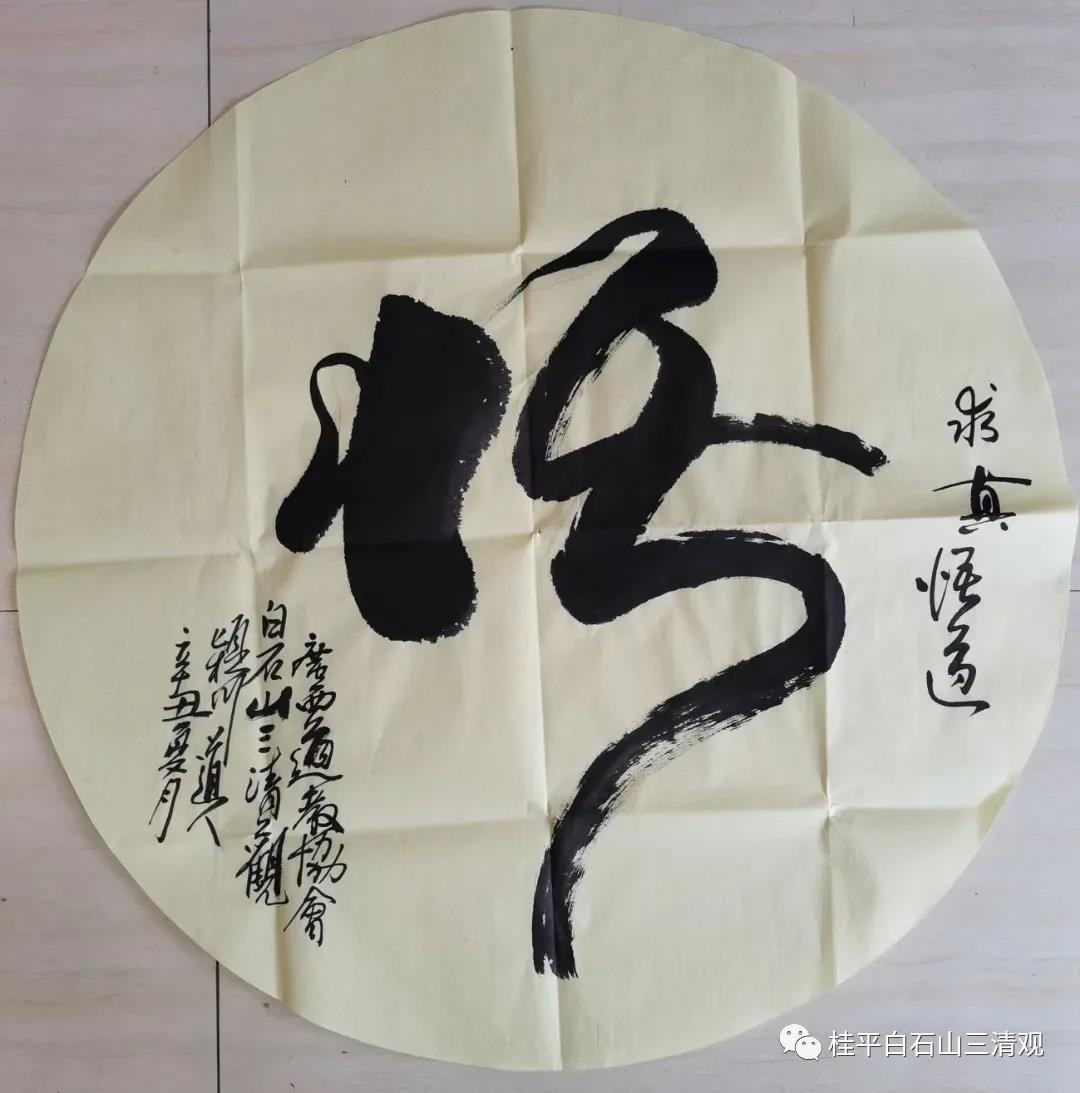 求真悟道
悟
广西道教協會
白石山三清观觀
颖川道人
辛丑夏月
桂平白石山三清观